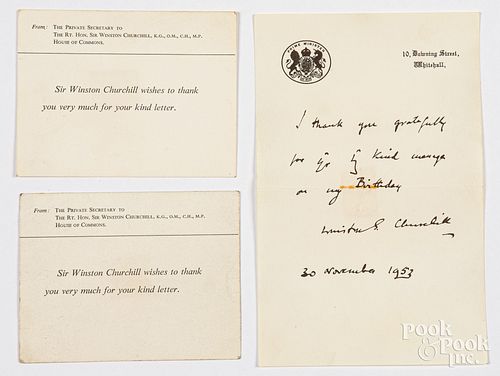 From: THE PRIVATE SECRETARY TO
THE RT. HON. SIR WINSTON CHURCHILL, K.G., O.M., C.H., M.P.
HOUSE OF COMMONS.
Sir Winston Churchill wishes to thank
you very much for your kind letter.
From: THE PRIVATE SECRETARY TO
THE RT. HON. SIR WINSTON CHURCHILL, K.G., O.M., C.H., M.P.
HOUSE OF COMMONS.
Sir Winston Churchill wishes to thank
you very much for your kind letter.
PRIME MINISTER
10, Downing Street,
Whitehall.
I thank you gratefully
for kind message
on my Birthday
Winston S. Churchill
30 November 1953
POOK
& POOK
Inc.